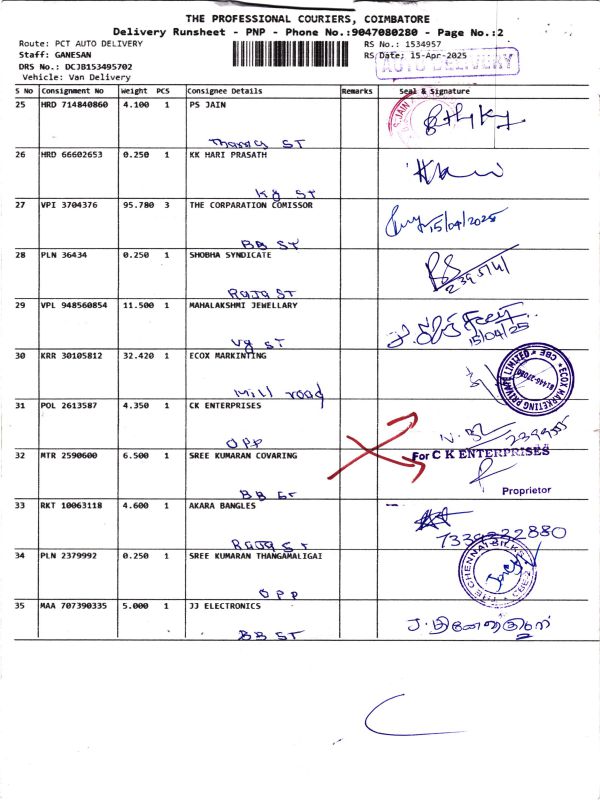 THE PROFESSIONAL COURIERS, COIMBATORE
Delivery Runsheet - PNP - Phone No.:9047080280 - Page No.:2
Route: PCT AUTO DELIVERY
Staff: GANESAN
DRS No.: DCJB153495702
Vehicle: Van Delivery
RS No.: 1534957
RS Date: 15-Apr-2025
AUTO DELIVERY
S No Consignment No Weight PCS Consignee Details Remarks Seal & Signature
25 HRD 714840860 4.100 1 PS JAIN
ST
26 HRD 66602653 0.250 1 KK HARI PRASATH
Kg ST
27 VPI 3704376 95.780 3 THE CORPARATION COMISSOR
15/04/2025
BB ST
28 PLN 36434 0.250 1 SHOBHA SYNDICATE
Raja ST
29 VPL 948560854 11.500 1 MAHALAKSHMI JEWELLARY
15/04/25
Vg ST
30 KRR 30105812 32.420 1 ECOX MARKINTING
ECOX MARKETING PRIVATE LIMITED * CBE *
Mill road
31 POL 2613587 4.350 1 CK ENTERPRISES
OPP
32 MTR 2590600 6.500 1 SREE KUMARAN COVARING
For C K ENTERPRISES
Proprietor
BB ST
33 RKT 10063118 4.600 1 AKARA BANGLES
7339222880
Raja ST
34 PLN 2379992 0.250 1 SREE KUMARAN THANGAMALIGAI
THE CHENNAI SILKS
OPP
35 MAA 707390335 5.000 1 JJ ELECTRONICS
BB ST